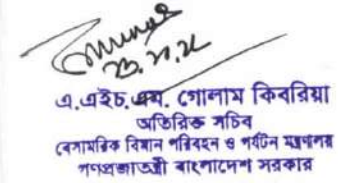 এ.এইচ.এম. গোলাম কিবরিয়া
অতিরিক্ত সচিব
বেসামরিক বিমান পরিবহন ও পর্যটন মন্ত্রণালয়
গণপ্রজাতন্ত্রী বাংলাদেশ সরকার